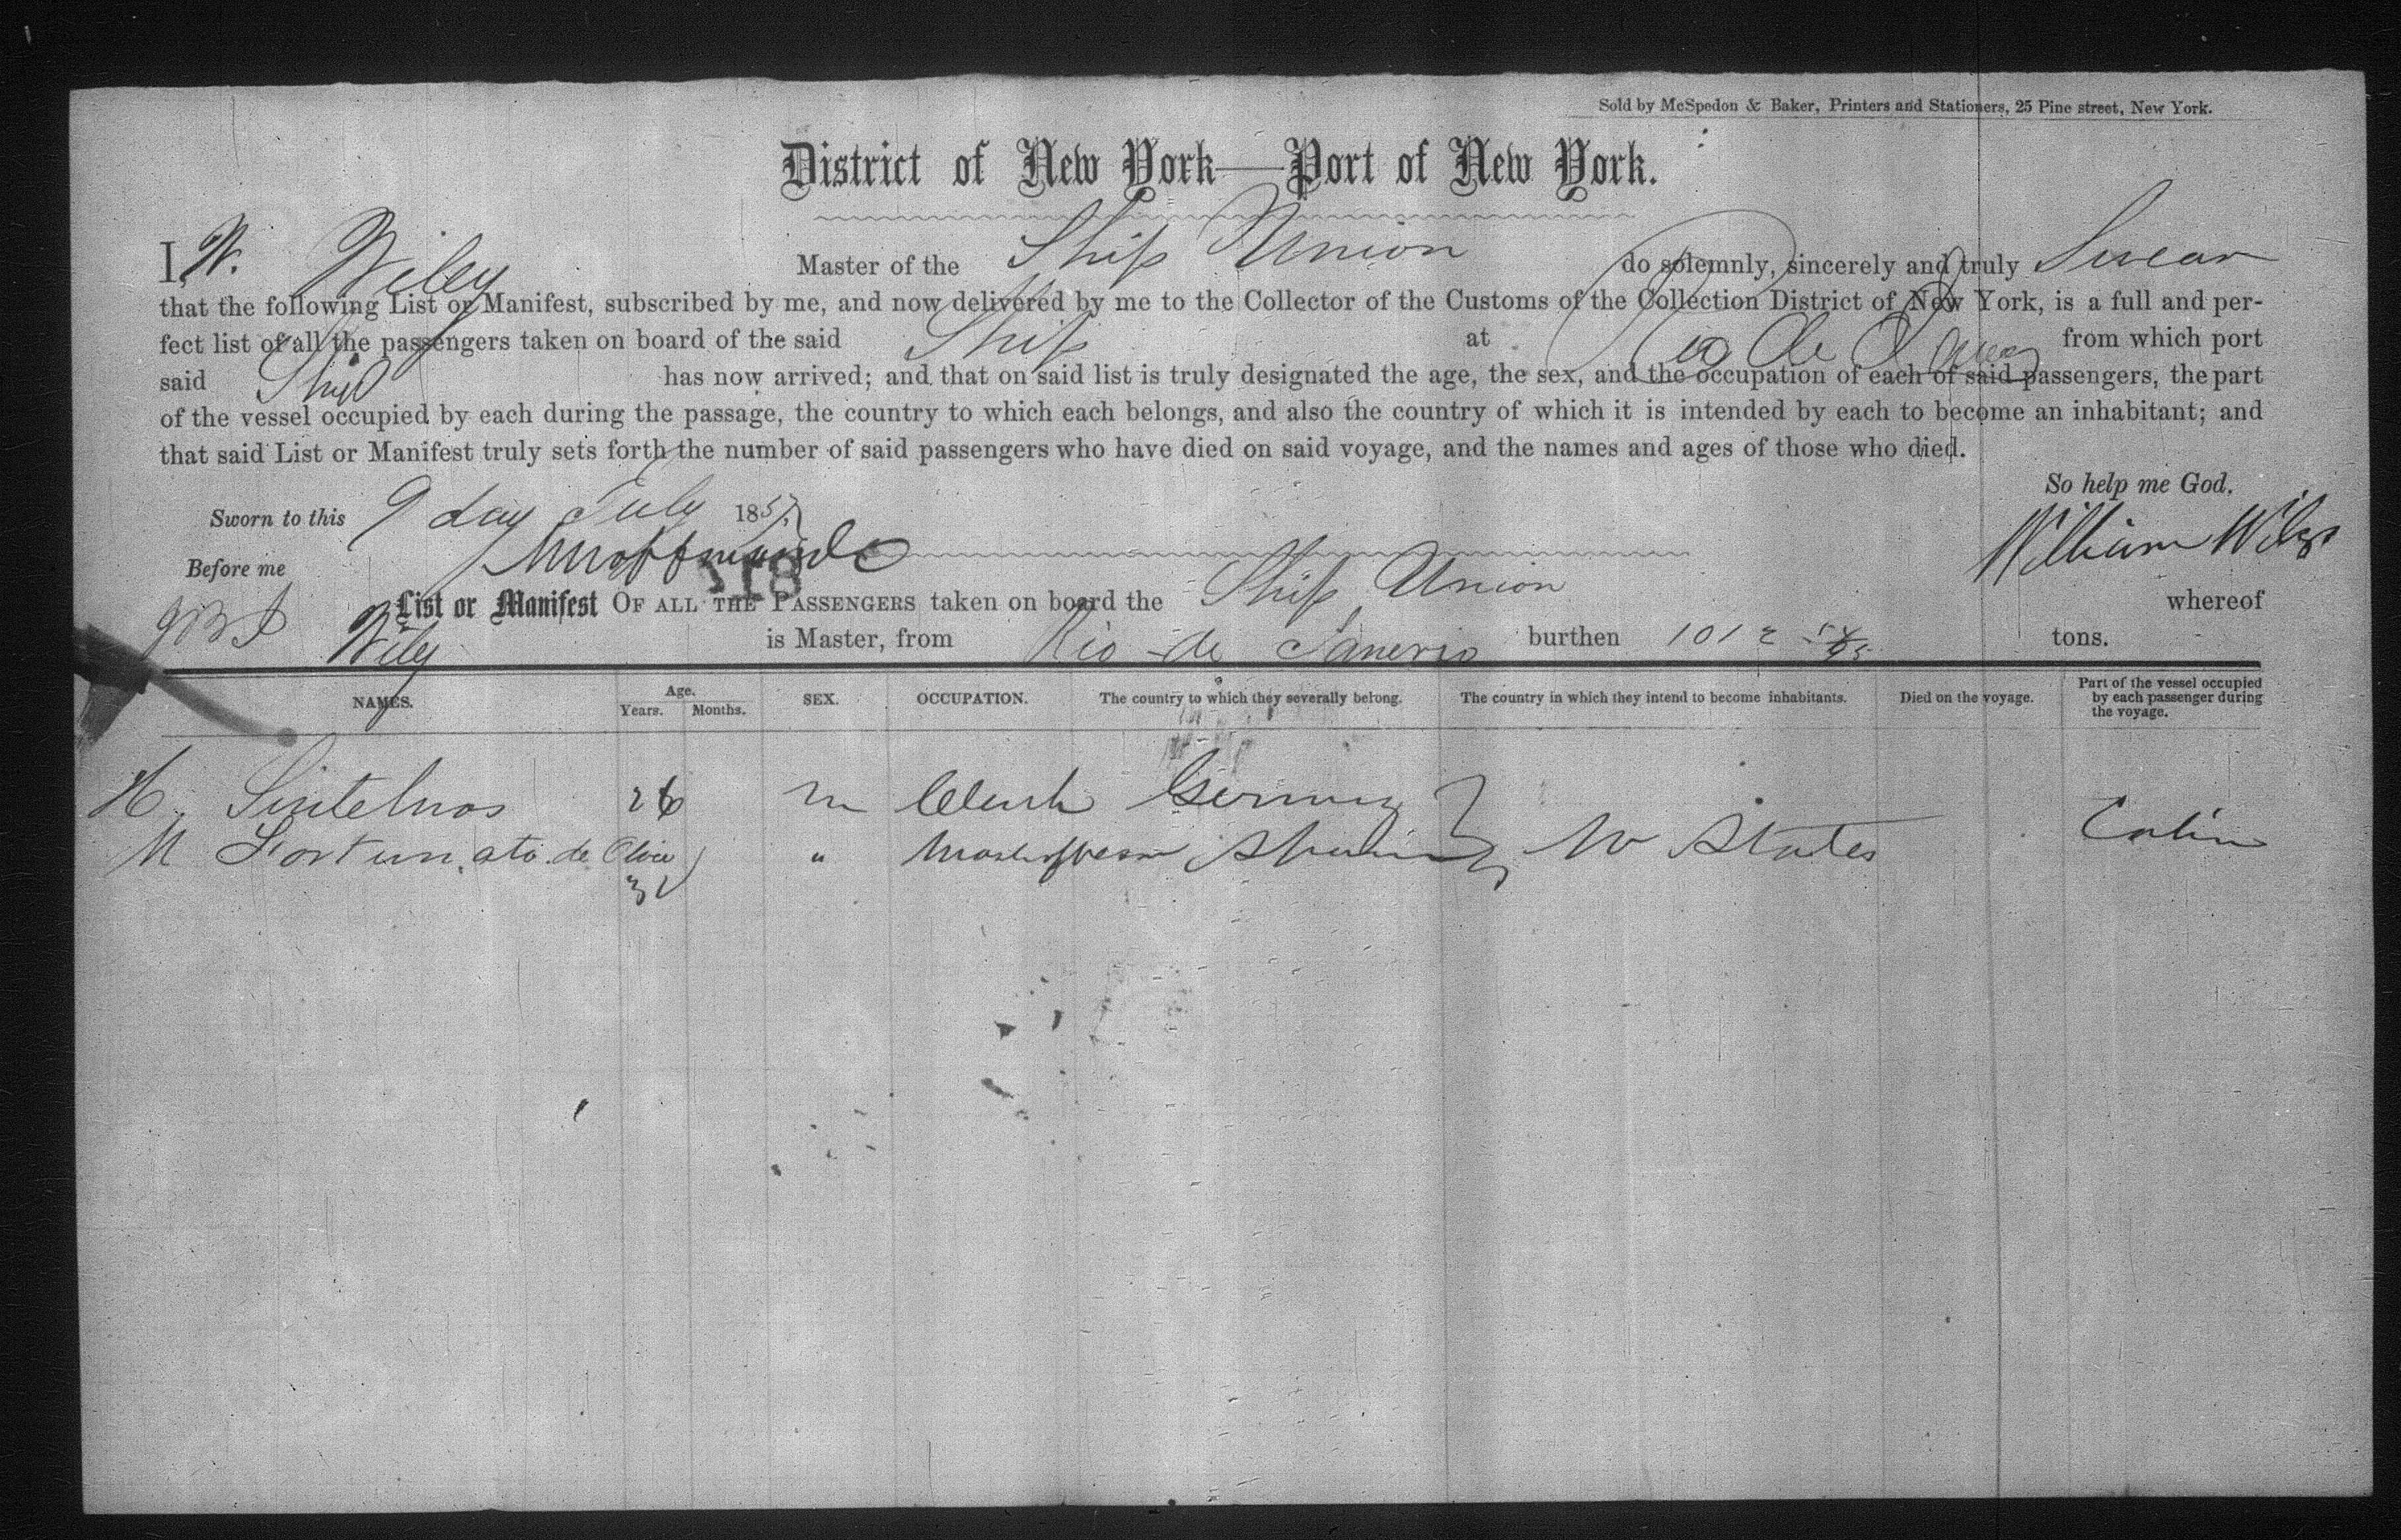 Sold by McSpedon & Baker, Printers and Stationers, 25 Pine street, New York.
District of New York—Port of New York.
I, W. Wiley Master of the Ship Union do solemnly, sincerely and truly Swear
that the following List or Manifest, subscribed by me, and now delivered by me to the Collector of the Customs of the Collection District of New York, is a full and per-
fect list of all the passengers taken on board of the said Ship at Rio de from which port
said Ship has now arrived; and that on said list is truly designated the age, the sex, and the occupation of each of said passengers, the part
of the vessel occupied by each during the passage, the country to which each belongs, and also the country of which it is intended by each to become an inhabitant; and
that said List or Manifest truly sets forth the number of said passengers who have died on said voyage, and the names and ages of those who died.
So help me God.
Sworn to this 9 day July 1857
William Wiley
Before me
List or Manifest OF ALL THE PASSENGERS taken on board the Ship Union whereof
Wiley is Master, from Rio de Janerio burthen 1012 tons.
NAMES. Age. Years. Months. SEX. OCCUPATION. The country to which they severally belong. The country in which they intend to become inhabitants. Died on the voyage. Part of the vessel occupied by each passenger during the voyage.
H. 26 m Clerk Germany
M Fortunato de " U States Cabin